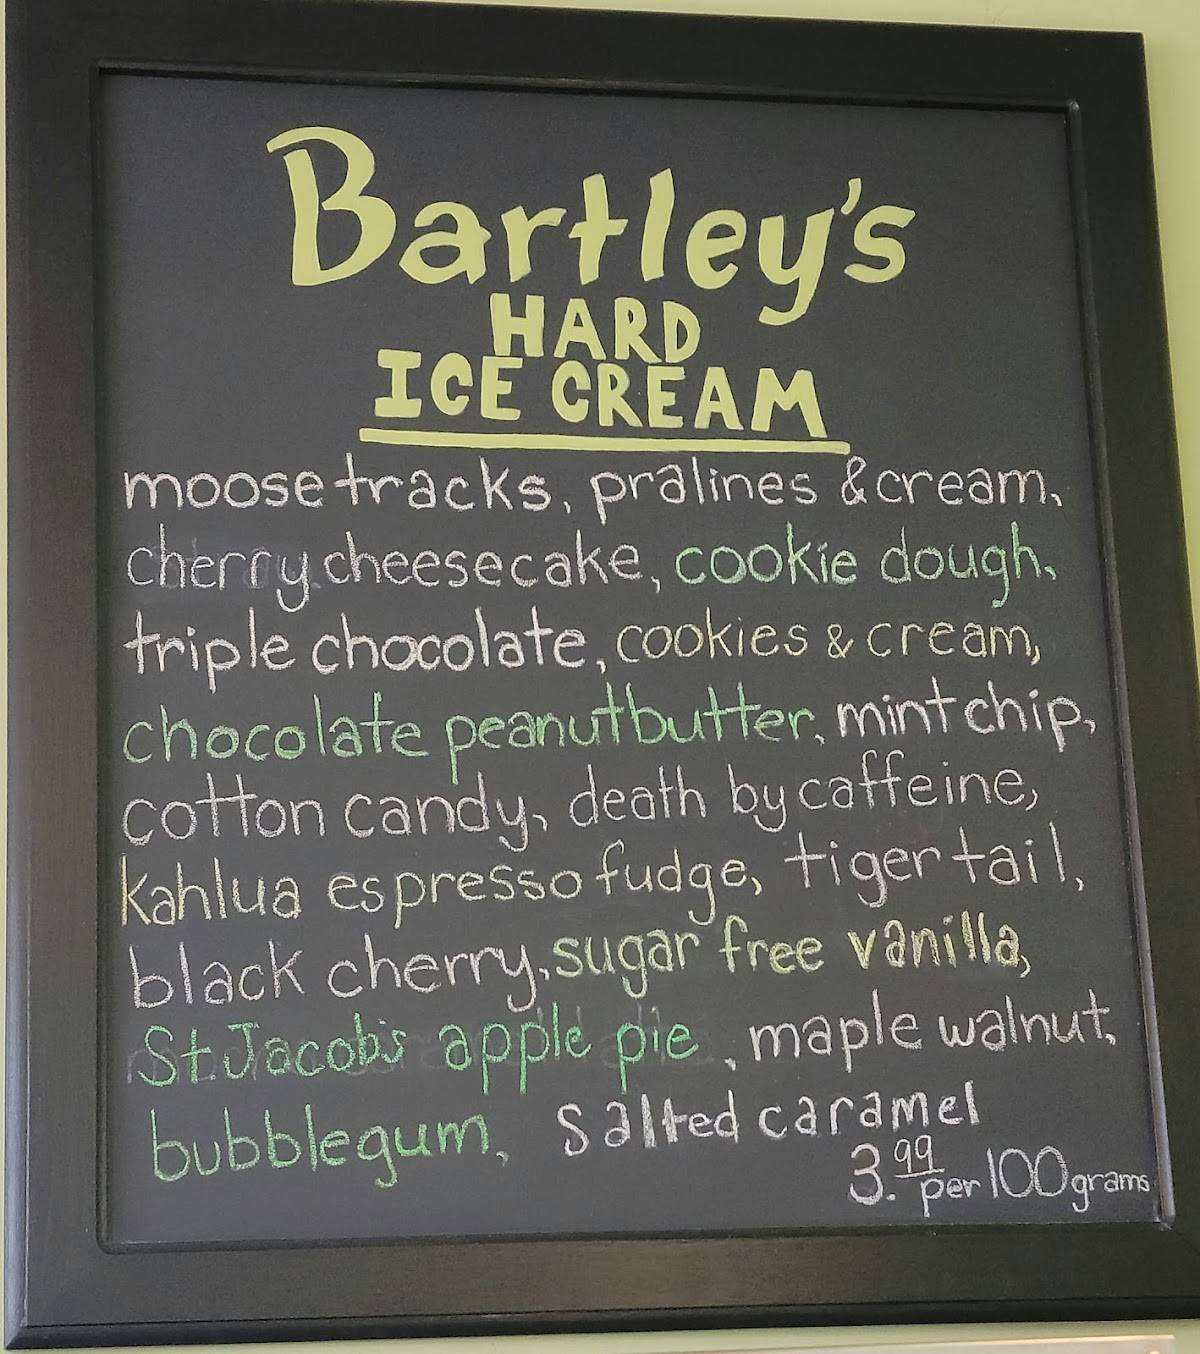 Bartley's
HARD
ICE CREAM
moose tracks, pralines & cream,
cherry cheesecake, cookie dough,
triple chocolate, cookies & cream,
chocolate peanutbutter, mint chip,
cotton candy, death by caffeine,
kahlua espresso fudge, tiger tail,
black cherry, sugar free vanilla,
St. Jacob's apple pie, maple walnut,
bubblegum, salted caramel
3.99 per 100 grams